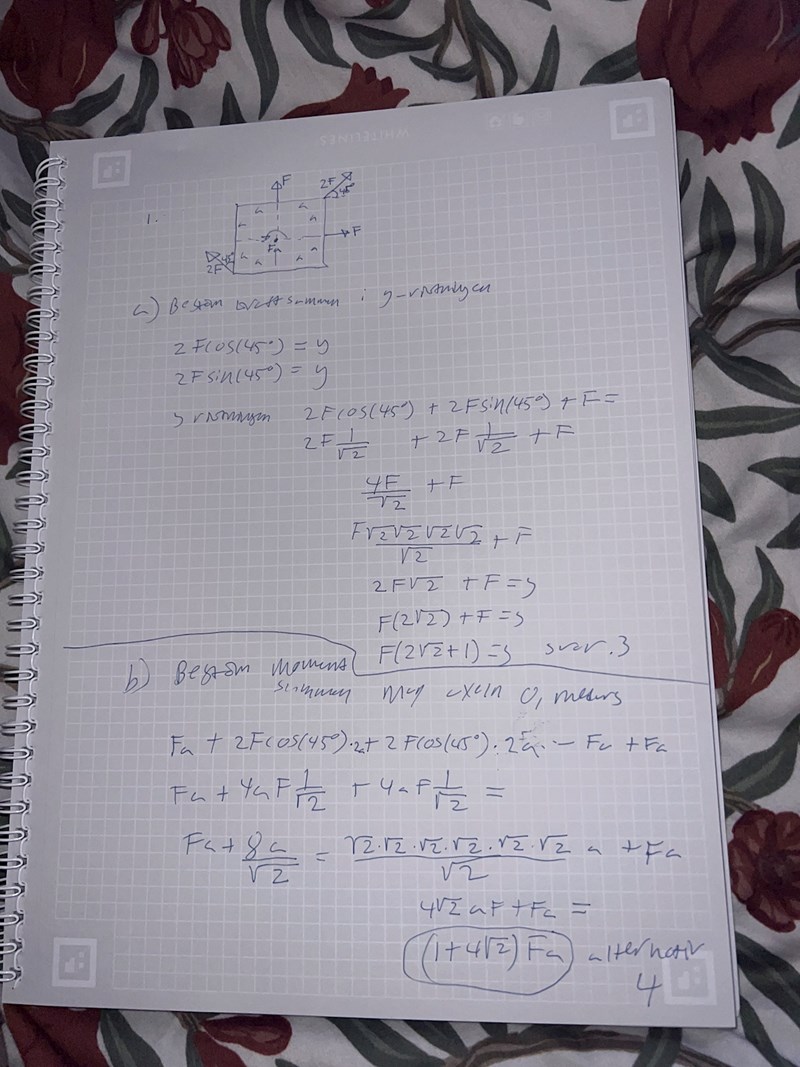 WHITELINES
1.
F
2F
45°
a a
a a
F
Fa
a a
a a
2F
a) Bestäm kraftsumman i y-riktningen
2Fcos(45°) = y
2Fsin(45°) = y
y riktningen 2Fcos(45°) + 2Fsin(45°) + F =
2F 1/√2 + 2F 1/√2 + F
4F/√2 + F
F√2√2√2√2/√2 + F
2F√2 + F = y
F(2√2) + F = y
F(2√2+1) = y svar. 3
b) Bestäm moment
summan map axeln O, medurs
Fa + 2Fcos(45°)·2a + 2Fcos(45°)·2a - Fa + Fa
Fa + 4aF 1/√2 + 4aF 1/√2 =
Fa + 8a/√2 = √2·√2·√2·√2·√2·√2/√2 a + Fa
4√2 aF + Fa =
(1+4√2) Fa alternativ
4